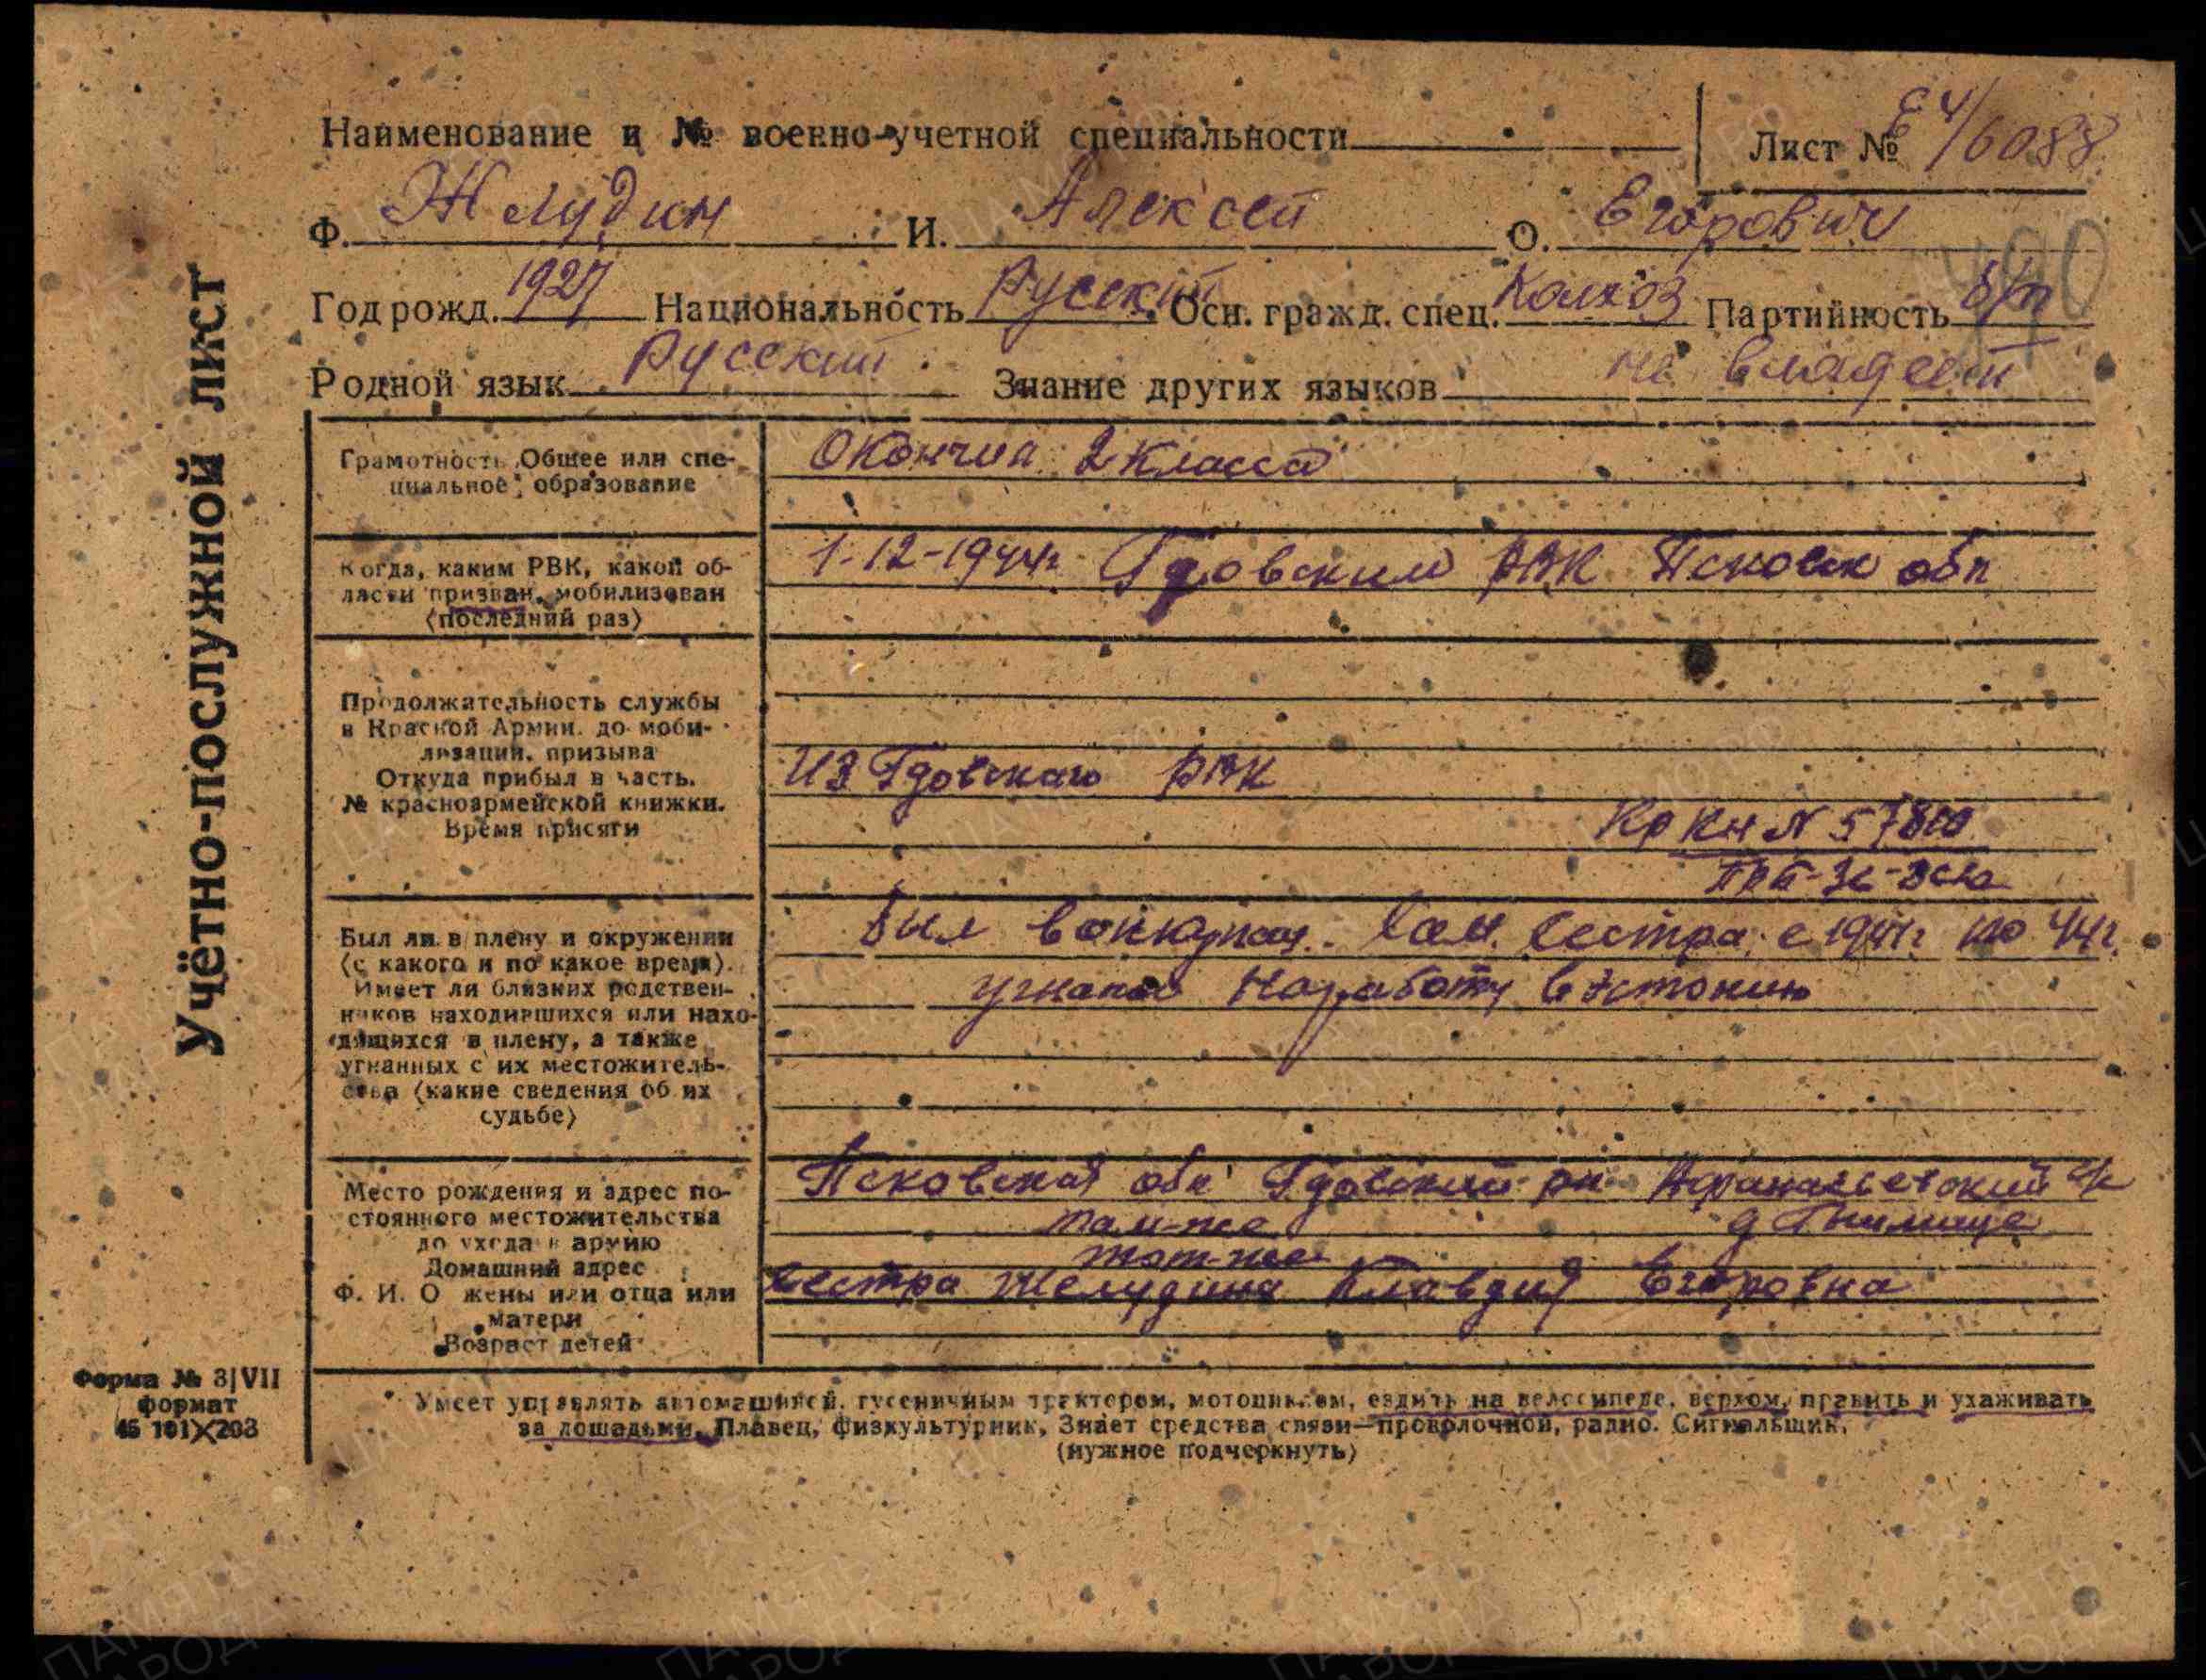 Учётно-послужной лист
Наименование и № военно-учетной специальности
Лист № Е4/6088
Ф. Жлудин И. Алексей О. Егорович
Год рожд. 1927 Национальность Русский Осн. гражд. спец. Колхоз Партийность б/п
Родной язык Русский Знание других языков не владеет
Грамотность Общее или спе-
циальное образование
Окончил 2 класса
Когда, каким РВК, какой об-
ласти призван, мобилизован
(последний раз)
1-12-1944г. Гдовским РВК Псковск обл
Продолжительность службы
в Красной Армии до моби-
лизации, призыва
Откуда прибыл в часть.
№ красноармейской книжки.
Время присяги
Из Гдовского РВК
Кр Кн N
Был ли в плену и окружении
(с какого и по какое время).
Имеет ли близких родствен-
ников находившихся или нахо-
дящихся в плену, а также
угнанных с их местожитель-
ства (какие сведения об их
судьбе)
Был в оккупац. Сам. Сестра с 1941г. по 44г.
угнана на работу в Эстонию
Место рождения и адрес по-
стоянного местожительства
до ухода в армию
Домашний адрес
Ф. И. О жены или отца или
матери
Возраст детей
Псковская обл Гдовский рн Афанасьевский с/с
там-же д Гнилище
тот-же
Сестра Желудина Клавдия Егоровна
Форма № 3/VII
формат
101×203
Умеет управлять автомашиной, гусеничным трактором, мотоциклом, ездить на велосипеде, верхом, править и ухаживать
за лошадьми. Плавец, физкультурник, Знает средства связи—проволочной, радио. Сигнальщик.
(нужное подчеркнуть)